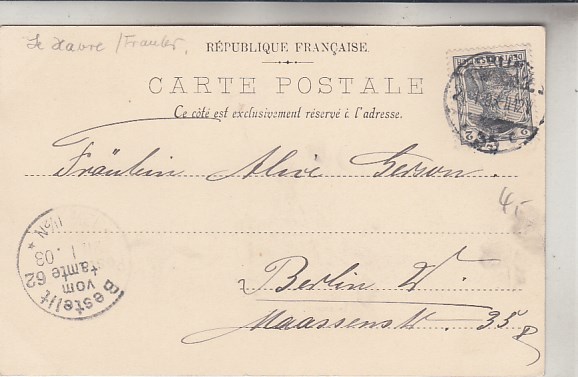 Le Havre / Frankr.
RÉPUBLIQUE FRANÇAISE.
CARTE POSTALE
Ce côté est exclusivement réservé à l'adresse.
Fräulein Alice Gerson.
4,-
Berlin W.
Maassenstr. 35
Bestellt
vom
Postamte 62
1. 03
N